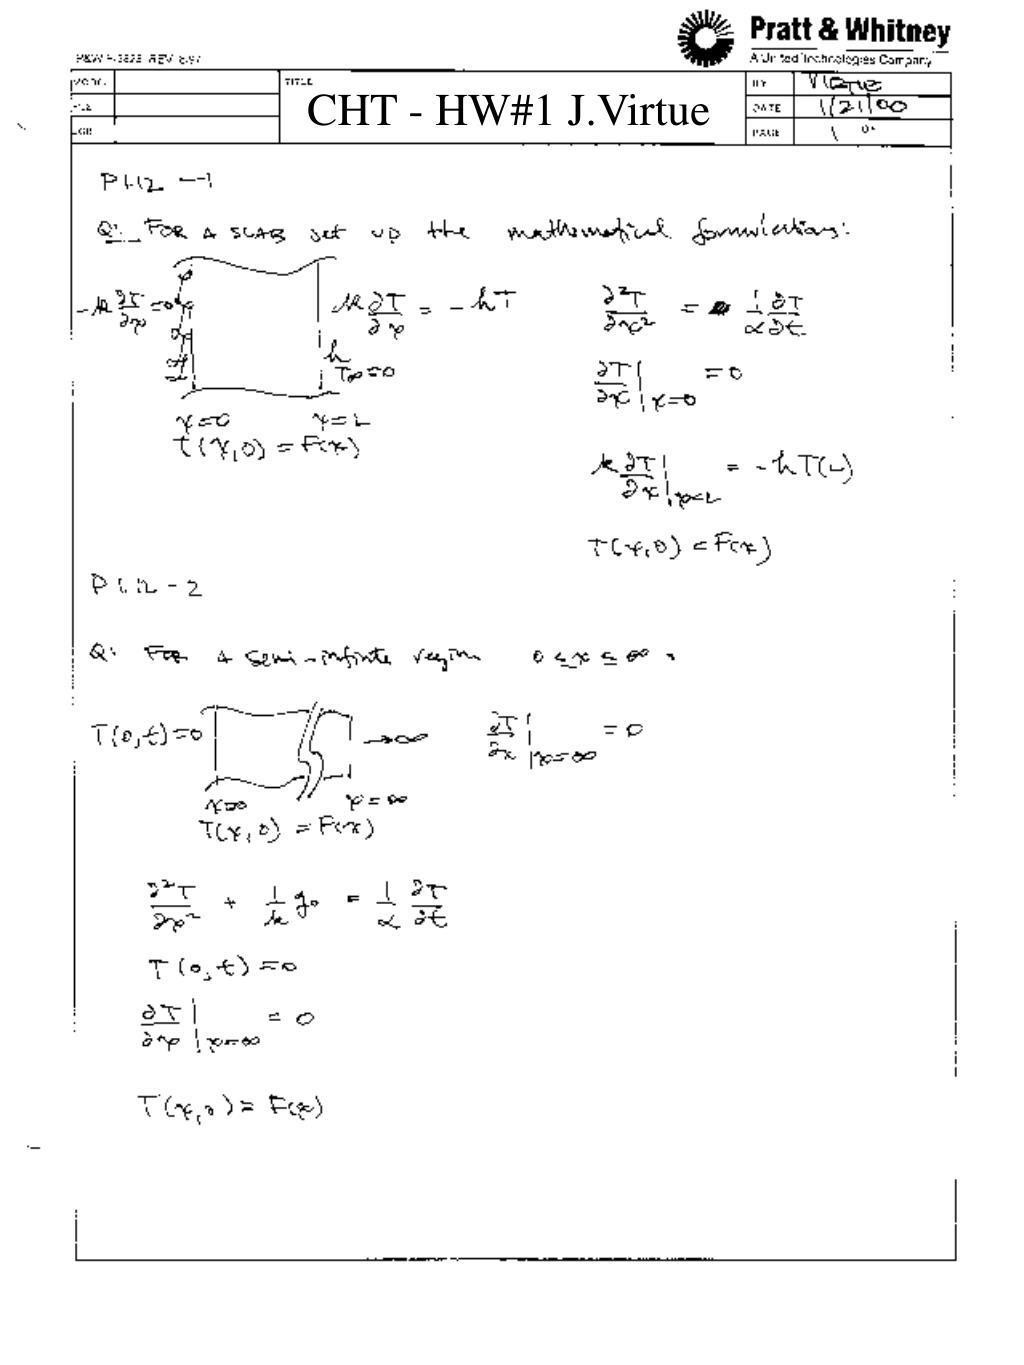 Pratt & Whitney
A United Technologies Company
P&W
REV
TITLE
CHT - HW#1 J.Virtue
BY VIRTUE
DATE 1/21/00
PAGE 1 OF
P1.12 -1
Q: FOR A SLAB set up the mathematical formulations:
-k ∂T/∂x = 0
k ∂T/∂x = -hT
h
T∞=0
x=0 x=L
T(x,0) = F(x)
∂²T/∂x² = 1/α ∂T/∂t
∂T/∂x |x=0 = 0
k ∂T/∂x |x=L = -hT(L)
T(x,0) = F(x)
P 1.12 - 2
Q: FOR A semi-infinite region 0 ≤ x ≤ ∞ :
T(0,t)=0
→∞
∂T/∂x |x=∞ = 0
x=0 x=∞
T(x,0) = F(x)
∂²T/∂x² + 1/k g₀ = 1/α ∂T/∂t
T(0,t) = 0
∂T/∂x |x=∞ = 0
T(x,0) = F(x)